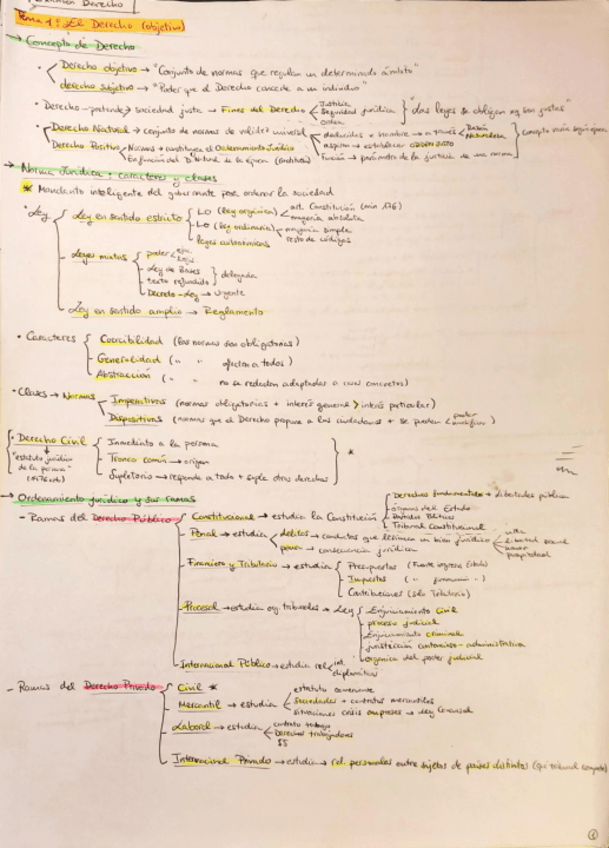 Examen Derecho
Tema 1: El Derecho (objetivo)
→ Concepto de Derecho
• Derecho objetivo → "Conjunto de normas que regulan un determinado ámbito"
derecho subjetivo → "Poder que el Derecho concede a un individuo"
• Derecho → pretende → sociedad justa → Fines del Derecho
Justicia
Seguridad jurídica
orden
"las leyes se obligan xq son justas"
• Derecho Natural → conjunto de normas de validez universal
deducidas x hombre → a través
Razón
Naturaleza
aspiran → establecer ORDEN JUSTO
Función → parámetro de la justicia de una norma
concepto varía según época
Derecho Positivo
Normas → constituyen el Ordenamiento Jurídico
En función del D. Natural de la época
→ Norma Jurídica + caracteres y clases
* Mandato inteligente del gobernante para ordenar la sociedad
• Ley
- Ley en sentido estricto
LO (ley orgánica)
art. Constitución
mayoría absoluta
LO (ley ordinaria)
mayoría simple
resto de códigos
leyes autonómicas
- Leyes mixtas
poder
eje.
legis.
- Ley de Bases
- texto refundido
delegada
- Decreto-Ley → Urgente
- Ley en sentido amplio → Reglamento
• Caracteres
Coercibilidad (las normas son obligatorias)
- Generalidad (" " afectan a todos)
- Abstracción (" " no se redactan adaptadas a casos concretos)
• Clases → Normas
Imperativas (normas obligatorias + interés general > interés particular)
Dispositivas (normas que el Derecho propone a los ciudadanos + se pueden
• Derecho Civil
"estatuto jurídico
de la persona"
- Inmediato a la persona
- Tronco común → origen
- Supletorio → responde a todo + suple otros derechos
*
→ Ordenamiento jurídico y sus ramas
- Ramas del Derecho Público
Constitucional → estudia la Constitución
Derechos fundamentales + libertades públicas
órganos del Estado
Partidos Políticos
Tribunal Constitucional
Penal → estudia
delitos → conductas que lesionan un bien jurídico
vida
libertad sexual
honor
propiedad
pena → consecuencia jurídica
- Financiero y Tributario → estudia
Presupuestos
- Impuestos
Contribuciones (sólo Tributario)
- Procesal → estudia org. tribunales → Ley
Enjuiciamiento Civil
- proceso judicial
- Enjuiciamiento criminal
- jurisdicción contencioso-administrativa
- orgánica del poder judicial
- Internacional Público → estudia rel.
int.
diplomáticas
- Ramas del Derecho Privado
Civil *
- Mercantil → estudia
estatuto comerciante
Sociedades + contratos mercantiles
situaciones crisis empresas → Ley Concursal
- Laboral → estudia
contrato trabajo
Derechos trabajadores
SS
Internacional Privado → estudia → rel. personales entre sujetos de países distintos (qué tribunal compete)
1